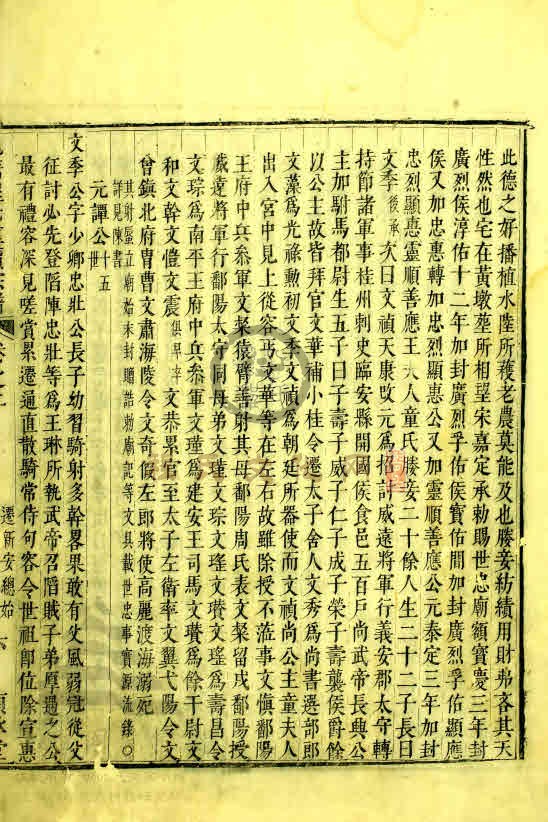 此德之好播植水陸所獲老農莫能及也勝妾紡績用財弗吝其天
性然也宅在黃墩塋所相望宋嘉定承勅賜世忠廟額寶慶三年封
廣烈侯淳佑十二年加封廣烈孚佑侯寶佑間加封廣烈孚佑顯應
侯又加忠惠轉加忠烈顯惠公又加靈順善應公元泰定三年加封
忠烈顯惠靈順善應王夫人童氏媵妾二十餘人生二十二子長曰
文季後承次曰文禎天康攺元為招討威遠將軍行義安郡太守轉
持節諸軍事桂州刺史臨安縣開國侯食邑五百戶尚武帝長興公
主加駙馬都尉生五子曰子壽子威子仁子成子榮子壽襲侯爵餘
以公主故皆拜官文華補小桂令遷太子舍人文秀為尚書選部郎
文藻為光祿勲初文季文禎為朝廷所器使而文禎尚公主童夫人
出入宮中見上從容丐文華等在左右故雖除授不蒞事文慎鄱陽
王府中兵叅軍文粲猿臂善射其母鄱陽周氏表文粲留戍鄱陽授
威遠將軍行鄱陽太守同母弟文瑾文琮文瑆文瓚文瑤為壽昌令
文琮為南平王府中兵叅軍文瑾為建安王司馬文瓚為餘干尉文
和文幹文愷文震集早卒文恭累官至太子左衛率文翼弋陽令文
曾鎮北府冑曹文肅海陵令文奇假左郎將使高麗渡海溺死
其射蜃立廟始末封贈誥勅廟記等文具載世忠事實源流錄○
詳見陳書
元譚公十五世
文季公字少卿忠壯公長子幼習騎射多幹畧果敢有父風弱冠從父
征討必先登陷陣忠壯等為王琳所執武帝召陷賊子弟厚遇之公
最有禮容深見嗟賞累遷通直散騎常侍句容令世祖卽位除宣惠
遷新安總始 六